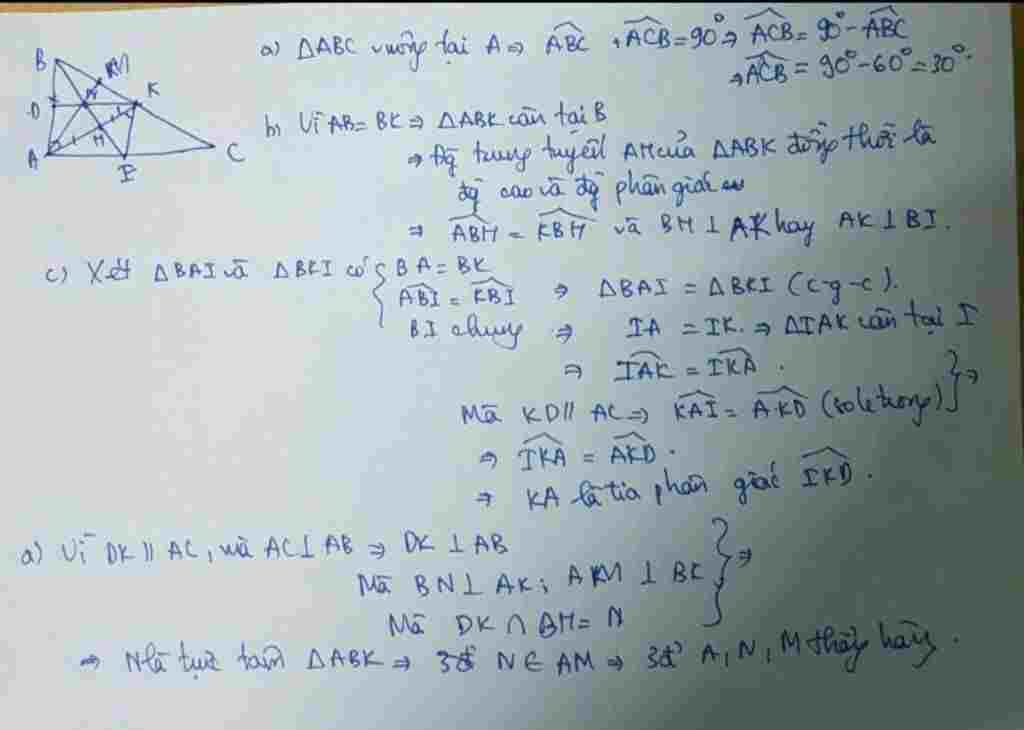 B
M
D
N
K
H
A
I
C
a) ΔABC vuông tại A ⇒ ABC + ACB = 90° ⇒ ACB = 90° - ABC
⇒ ACB = 90° - 60° = 30°.
b) Vì AB = BK ⇒ ΔABK cân tại B
⇒ đg trung tuyến AH của ΔABK đồng thời là
đg cao và đg phân giác
⇒ ABH = KBH và BH ⊥ AK hay AK ⊥ BI.
c) Xét ΔBAI và ΔBKI có { BA = BK
ABI = KBI ⇒ ΔBAI = ΔBKI (c-g-c).
BI chung ⇒ IA = IK. ⇒ ΔIAK cân tại I
⇒ IAK = IKA.
Mà KD // AC ⇒ KAI = AKD (so le trong) } ⇒
⇒ IKA = AKD.
⇒ KA là tia phân giác IKD.
a) Vì DK // AC, mà AC ⊥ AB ⇒ DK ⊥ AB
Mà BN ⊥ AK; AM ⊥ BK } ⇒
Mà DK ∩ BH = N
⇒ N là trực tâm ΔABK ⇒ N ∈ AM ⇒ 3đ' A, N, M thẳng hàng.